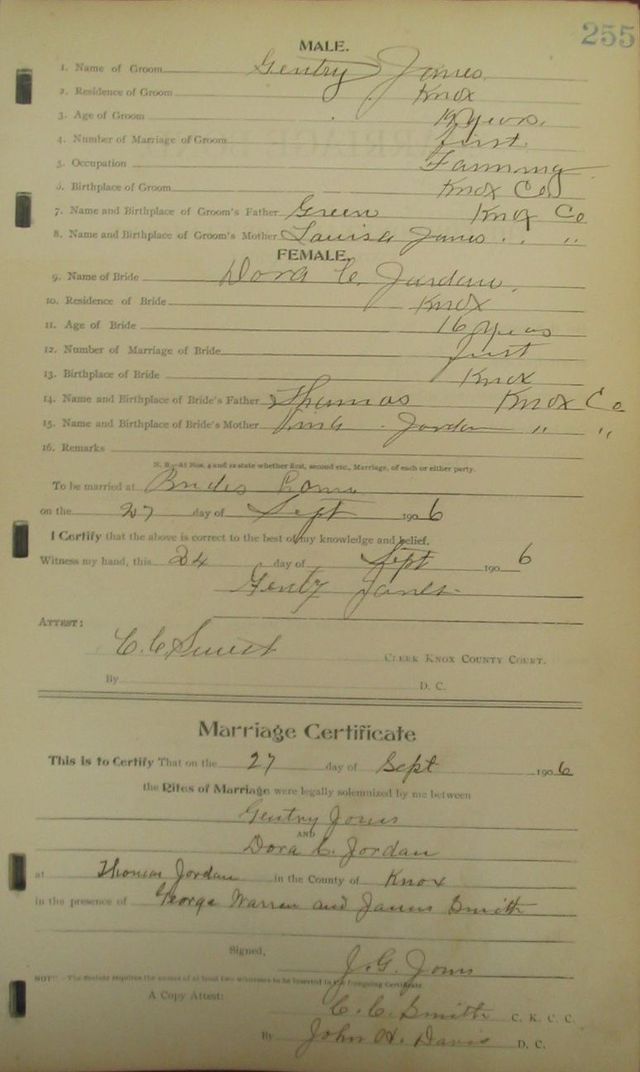 255
MALE.
1. Name of Groom Gentry Jones
2. Residence of Groom Knox
3. Age of Groom 19 years.
4. Number of Marriage of Groom first
5. Occupation Farming
6. Birthplace of Groom Knox Co
7. Name and Birthplace of Groom's Father Green Knox Co
8. Name and Birthplace of Groom's Mother Louisa Jones " "
FEMALE.
9. Name of Bride Dora C. Jordan
10. Residence of Bride Knox
11. Age of Bride 16 years
12. Number of Marriage of Bride first
13. Birthplace of Bride Knox
14. Name and Birthplace of Bride's Father Thomas Knox Co
15. Name and Birthplace of Bride's Mother Jordan " "
16. Remarks
N. B.—At Nos. 4 and 12 state whether first, second etc., Marriage, of each or either party.
To be married at Brides
on the 27 day of Sept 1906
I Certify that the above is correct to the best of my knowledge and belief.
Witness my hand, this 24 day of Sept 1906
Gentry Jones
ATTEST:
C. C. Smith
CLERK KNOX COUNTY COURT.
By D. C.
Marriage Certificate
This is to Certify That on the 27 day of Sept 1906
the Rites of Marriage were legally solemnized by me between
Gentry Jones
AND
Dora C. Jordan
at Thomas Jordan in the County of Knox
in the presence of George Warren and James Smith
Signed, J. G. Jones
NOTE—The Statute requires the names of at least two witnesses to be inserted in the foregoing Certificate.
A Copy Attest:
C. C. Smith C. K. C. C.
By John H. Davis D. C.